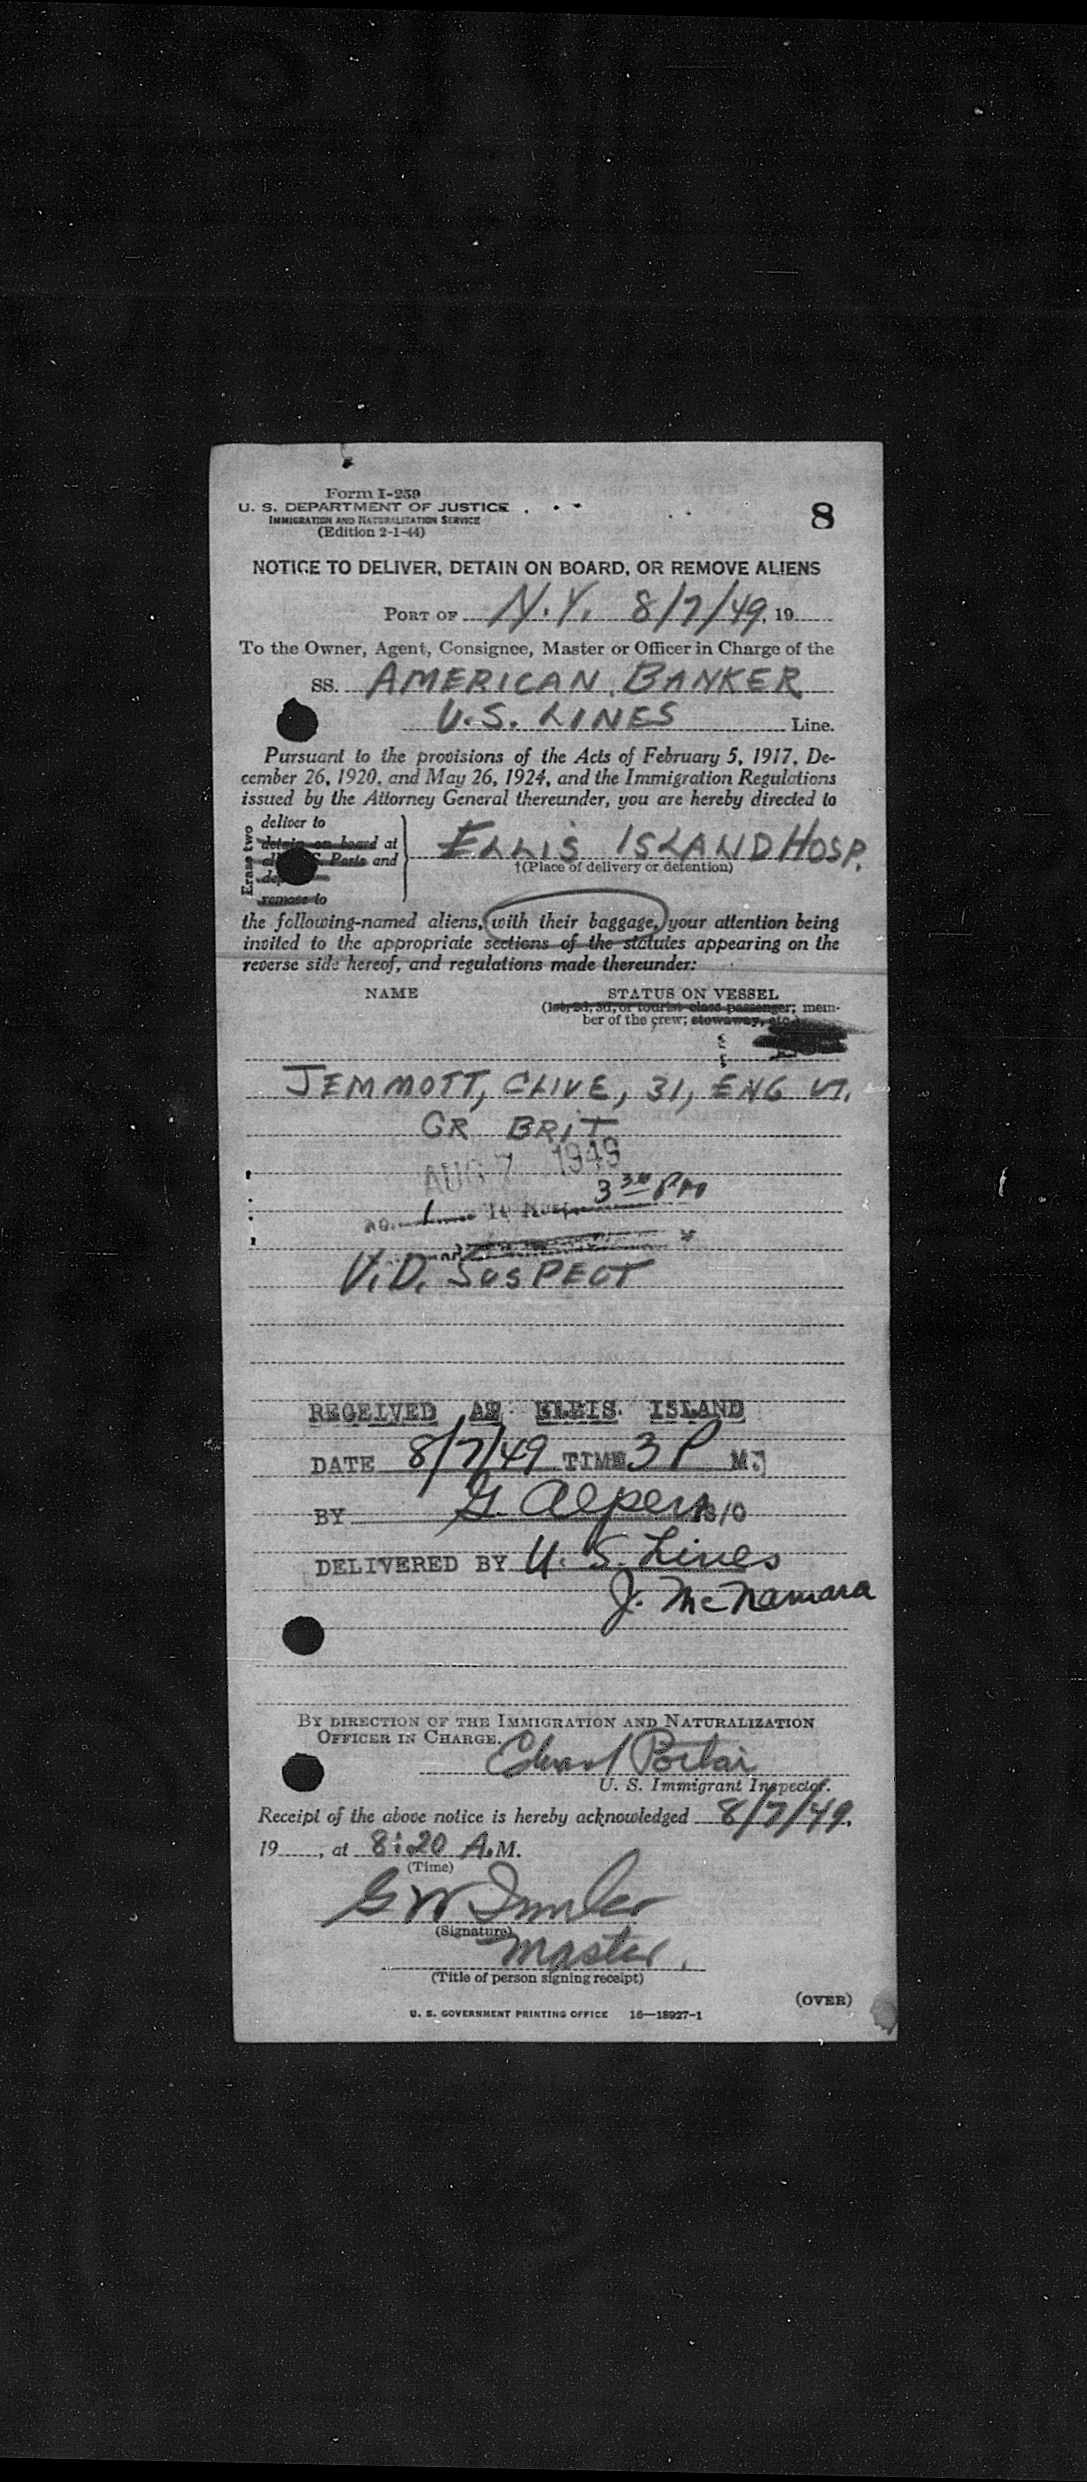 Form I-259
U. S. DEPARTMENT OF JUSTICE
IMMIGRATION AND NATURALIZATION SERVICE
(Edition 2-1-44)
8
NOTICE TO DELIVER, DETAIN ON BOARD, OR REMOVE ALIENS
PORT OF N.Y. 8/7/49, 19
To the Owner, Agent, Consignee, Master or Officer in Charge of the
SS. AMERICAN BANKER
U.S. LINES Line.
Pursuant to the provisions of the Acts of February 5, 1917, De-
cember 26, 1920, and May 26, 1924, and the Immigration Regulations
issued by the Attorney General thereunder, you are hereby directed to
Erase two
deliver to
detain on board at
Ports and
remove to
ELLIS ISLAND HOSP.
†(Place of delivery or detention)
the following-named aliens, with their baggage, your attention being
invited to the appropriate sections of the statutes appearing on the
reverse side hereof, and regulations made thereunder:
NAME STATUS ON VESSEL
(1st, 2d, 3d, or tourist class passenger; mem-
ber of the crew; stowaway, etc.)
JEMMOTT, CLIVE, 31, ENG
GR BRIT
AUG 7 1949
3 30 PM
no. 1
V.D. SUSPECT
RECEIVED AT ELLIS ISLAND
DATE 8/7/49 TIME 3 P M.
BY G. Alpern
DELIVERED BY U. S. Lines
J. McNamara
BY DIRECTION OF THE IMMIGRATION AND NATURALIZATION
OFFICER IN CHARGE.
U. S. Immigrant Inspector.
Receipt of the above notice is hereby acknowledged 8/7/49,
19, at 8:20 A.M.
(Time)
(Signature)
Master.
(Title of person signing receipt)
(OVER)
U. S. GOVERNMENT PRINTING OFFICE 16—18927-1